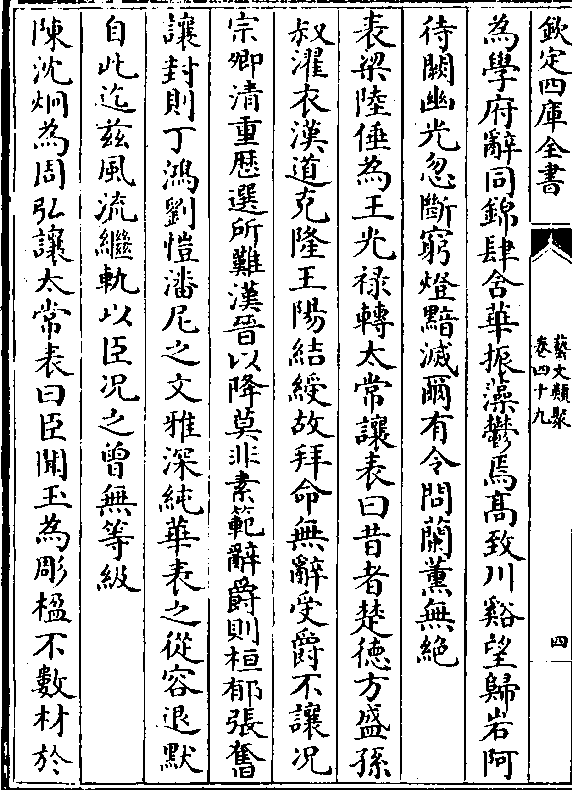 欽定四庫全書
藝文類聚
卷四十九
四
為學府辭同錦肆含華振藻鬱焉高致川谿望歸岩阿
待闕幽光忽斷窮燈黯滅爾有令問蘭薰無絶
表梁陸倕為王光禄轉太常讓表曰昔者楚德方盛孫
叔濯衣漢道克隆王陽結綬故拜命無辭受爵不讓况
宗卿清重歴選所難漢晉以降莫非素範辭爵則桓郁張奮
讓封則丁鴻劉愷潘尼之文雅深純華表之從容退默
自此迄兹風流繼軌以臣况之曾無等級
陳沈炯為周弘讓太常表曰臣聞玉為彫楹不數材於